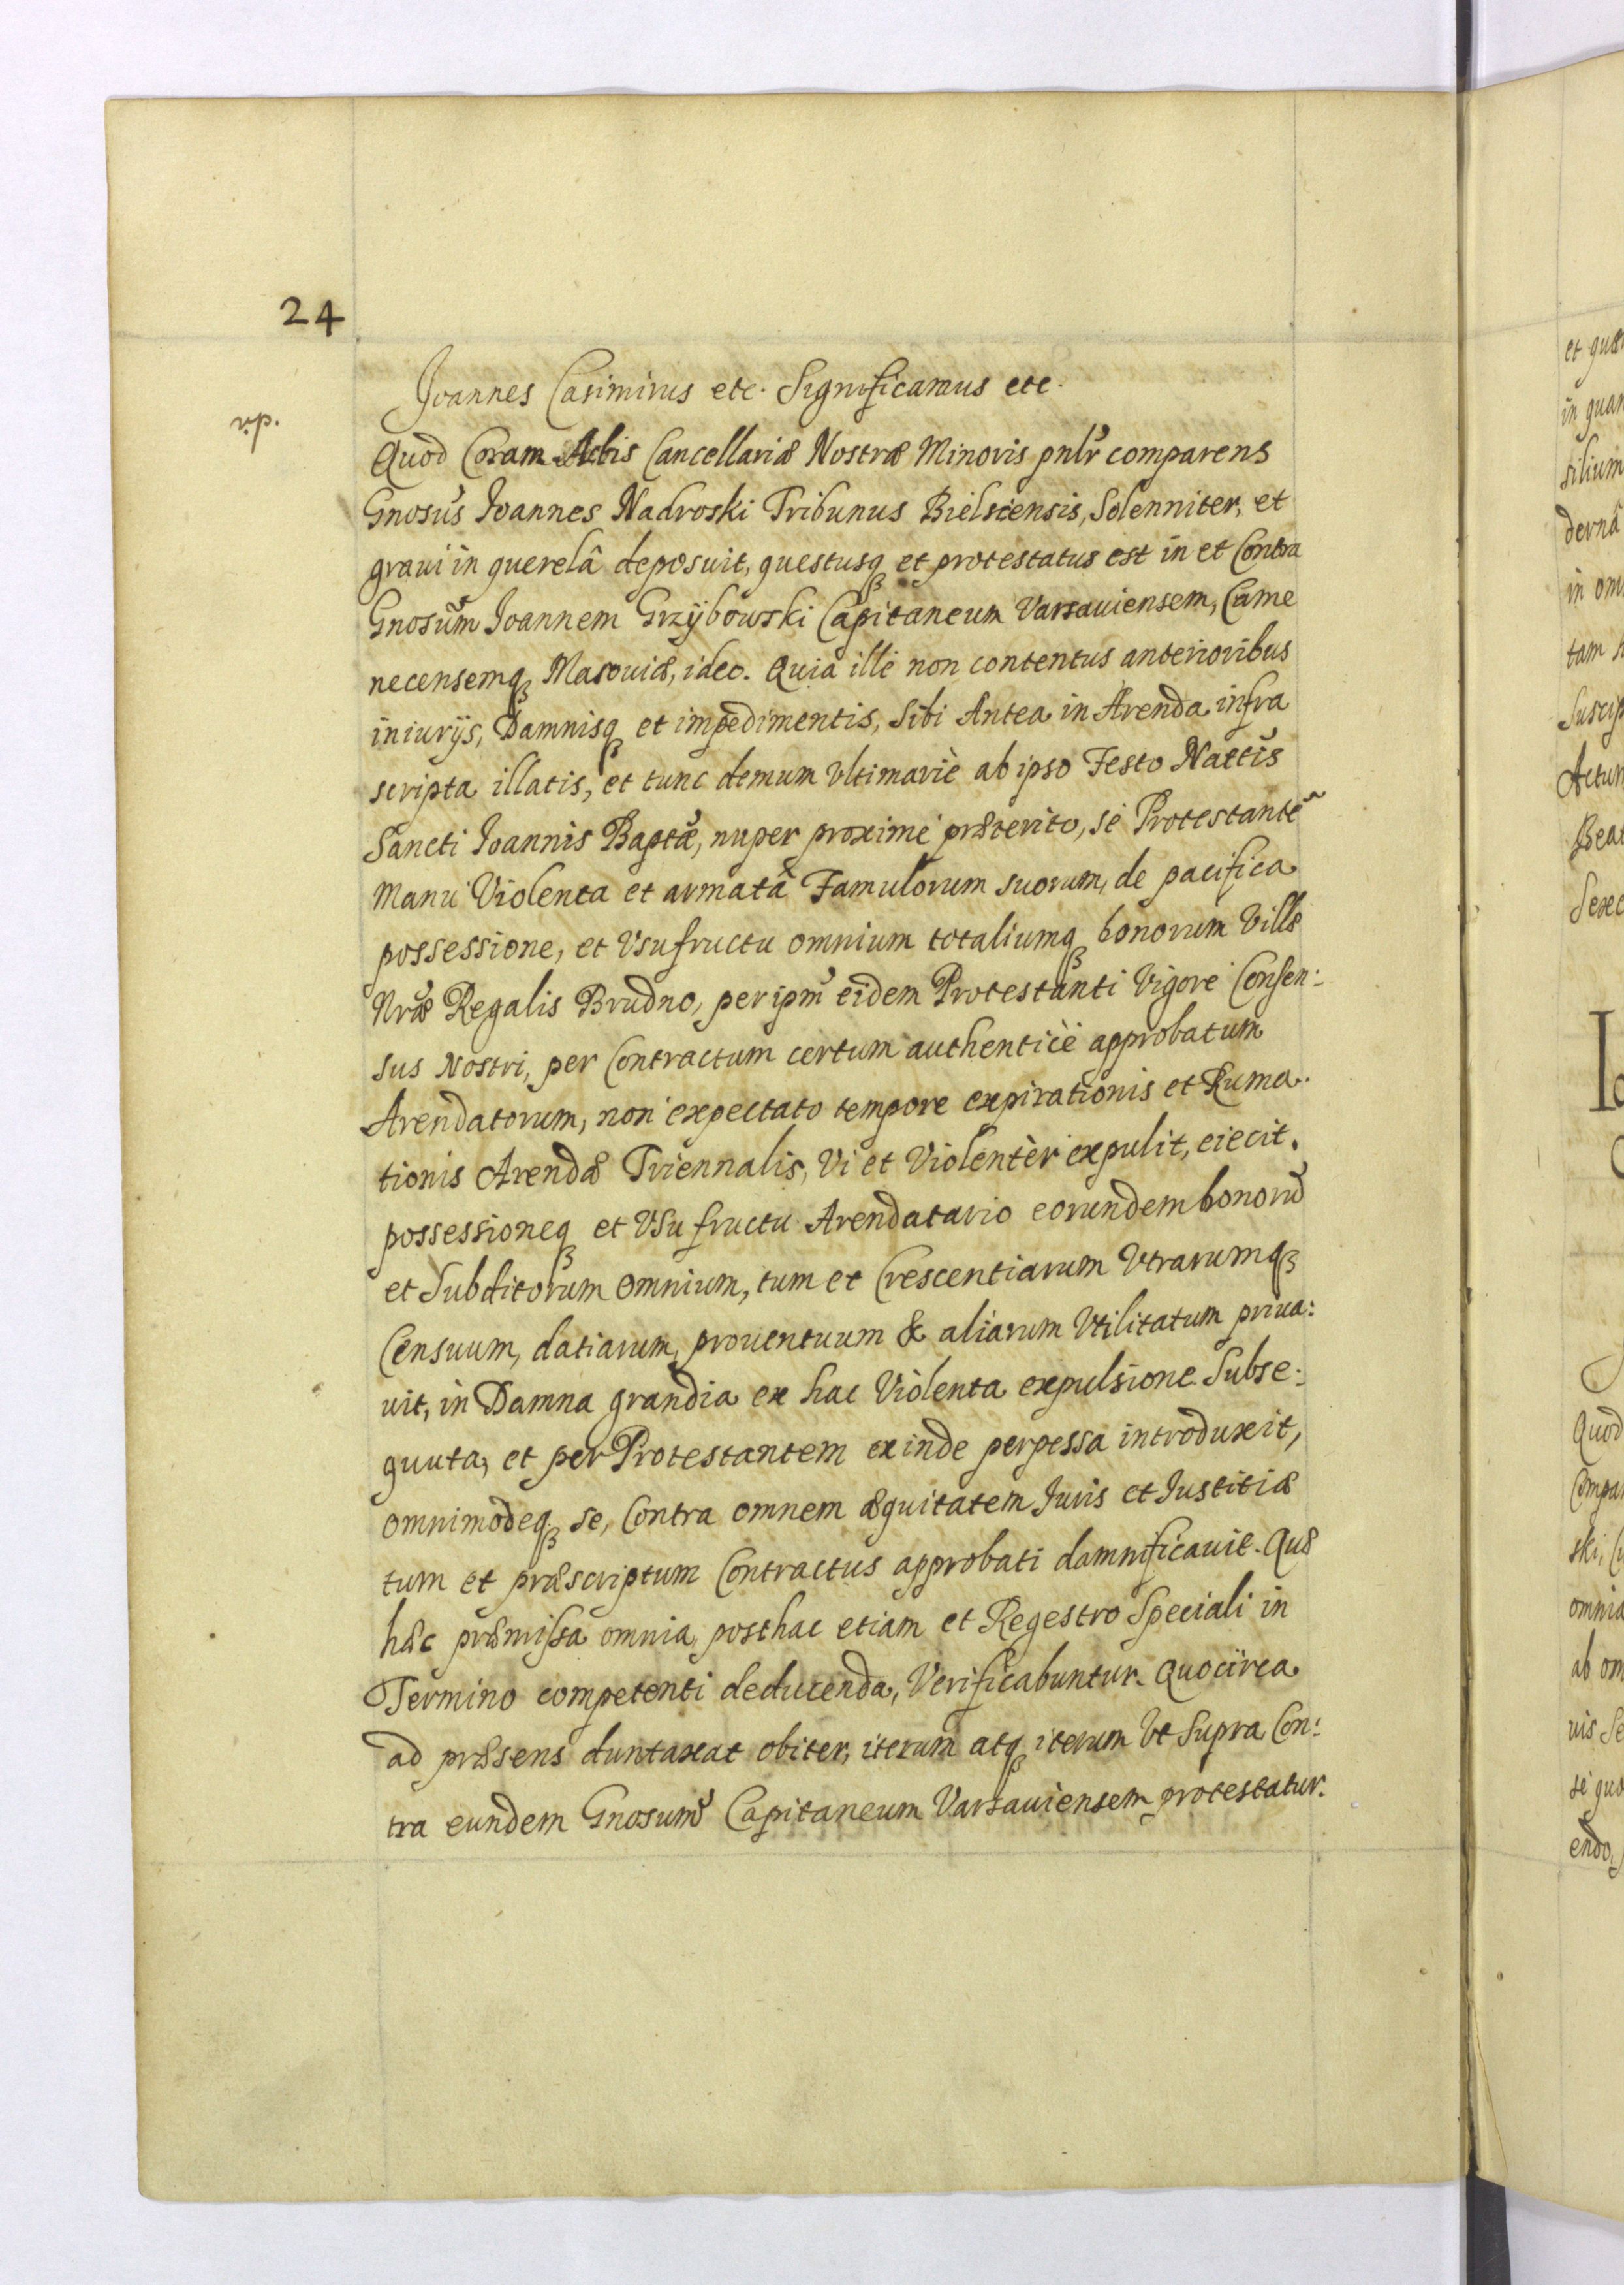 24
Joannes Casimirus etc. Significamus etc.
Quod Coram Actis Cancellariæ Nostræ Minoris pnlr comparens
Gnosus Joannes Nadroski Tribunus Bielscensis, Solenniter, et
graui in querelâ deposuit, questusq et protestatus est in et Contra
Gnosum Joannem Grzÿbowski Capitaneum Varsauiensem, Came
necensemq Masouiæ, ideo. Quia ille non contentus anterioribus
iniurijs, Damnisq et impedimentis, sibi Antea in Arenda infra
scripta illatis, et tunc demum Vltimariè ab ipso Festo Nattis
Sancti Joannis Baptæ, nuper proximè præterito, sè Protestantẽ
Manu Violenta et armatâ Famulorum suorum, de pacifica
possessione, et Vsufructu omnium totaliumq bonorum Villæ
Nræ Regalis Brudno, per ipm eidem Protestanti Vigore Consen:
sus Nostri, per Contractum certum authenticè approbatum
Arendatorum, non expectato tempore expirationis et Ruma:
tionis Arendæ Triennalis, Vi et Violentèr expulit, eiecit.
possessioneq et Vsu fructu Arendatario eorundem bonorũ
et Subditorum omnium, tum et Crescentiarum Vtrarumq
Censuum, datiarum, prouentuum & aliarum Vtilitatum priua:
uit, in Damna grandia ex hac Violenta expulsione Subse:
quuta, et per Protestantem exinde perpessa introduxit,
omnimodeq se, Contra omnem æquitatem Juris et Justitiæ
tum et præscriptum Contractus approbati damnificauit. Quæ
hæc præmissa omnia, posthac etiam et Regestro Speciali in
Termino competenti deducenda, Verificabuntur. Quocirca
ad præsens duntaxat obiter, iterum atq iterum Vt Supra Con:
tra eundem Gnosum Capitaneum Varsauiensem protestatur.